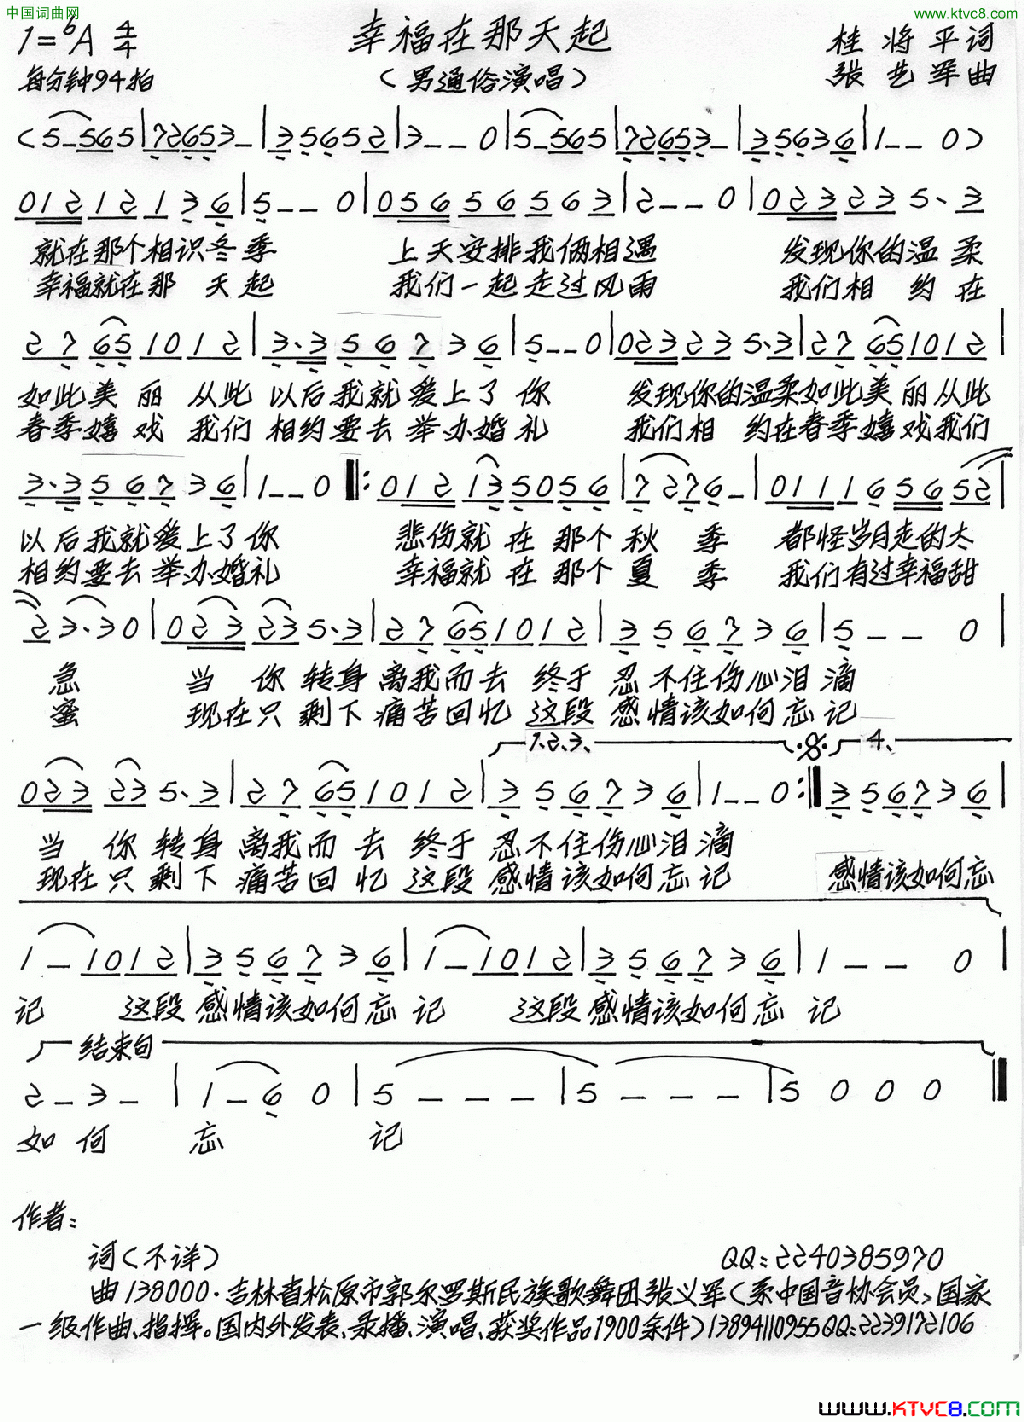 中国词曲网
www.ktvc8.com
1=ᵇA 4/4
幸福在那天起
桂将平词
每分钟94拍
(男通俗演唱)
张艺军曲
(5-565|72653-|356522|3--0|5-565|72653-|35636|1--0)
01212136|5--0|05656563|2--0|02235·3
就在那个相识冬季 上天安排我俩相遇 发现你的温柔
幸福就在那天起 我们一起走过风雨 我们相约在
27651012|3·356736|5--0|0232235·3|27651012|
如此美丽从此以后我就爱上了你 发现你的温柔如此美丽从此
春季嬉戏我们相约要去举办婚礼 我们相约在春季嬉戏我们
3·356736|1--0‖:0121350556|7276-|011165652|
以后我就爱上了你 悲伤就在那个秋季 都怪岁月走的太
相约要去举办婚礼 幸福就在那个夏季 我们有过幸福甜
23·30|023235·3|27651012|356736|5--0|
急 当你转身离我而去终于忍不住伤心泪滴
蜜 现在只剩下痛苦回忆这段感情该如何忘记
1.2.3. 4.
023235·3|27651012|356736|1--0:‖356736|
当你转身离我而去终于忍不住伤心泪滴
现在只剩下痛苦回忆这段感情该如何忘记 感情该如何忘
1-1012|356736|1-1012|356736|1--0|
记 这段感情该如何忘记 这段感情该如何忘记
结束句
2-3-|1-60|5---|5---|5000‖
如何忘记
作者:
词(不详) QQ:2240385970
曲138000·吉林省松原市郭尔罗斯民族歌舞团张义军(系中国音协会员,国家
一级作曲、指挥。国内外发表、录播、演唱、获奖作品1900余件)13894110955QQ:2239172106
www.KTVC8.com